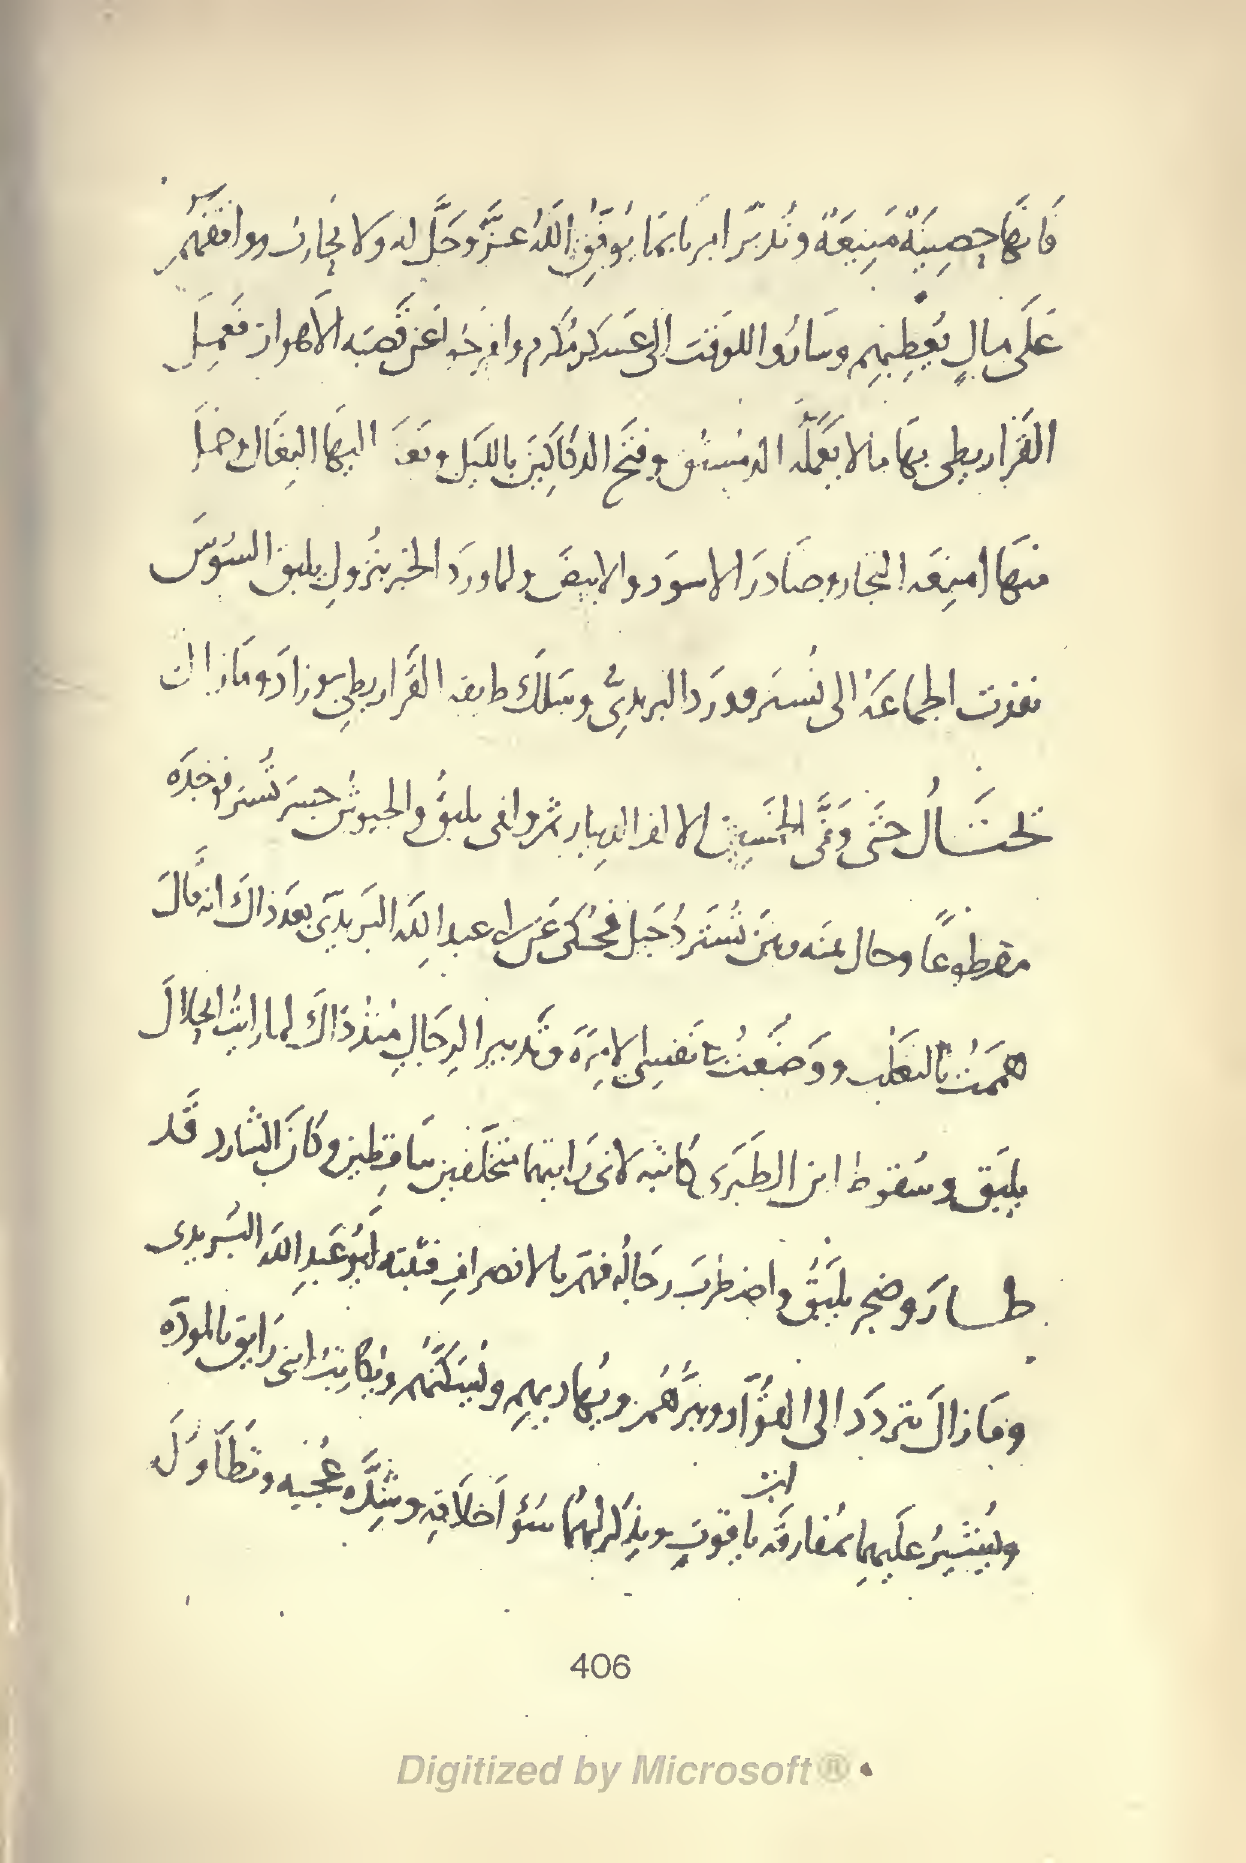 فَانّهَا حصِينَةٌ مَنِيعَةٌ وتُدبّر امرنا بمَا يُوفّقِ اللّهُ عَزَّ وَجَلَّ له وَلا يُحَارب ووافقهم
عَلَى مالٍ يُعطِيهِم وسَارُوا للوَقت الى عَسكر مُكرم وافرجُوا عَن قَصَبَه الأهواز فَعمِلَ
القَراريطى بهَا ما لا يَعمَله الدمستق وفتَح الدكاكِينَ باللّيَل ونَقلَ اليهَا البِغَال وحمل
منهَا امتِعَه التجار وصَادرَ الاسوَد والابيضَ ولما ورَد الخبَر بنُزولِ يلبق السُوسَ
نفذت الجماعَهُ الى تُستر وورَد البريدِيّ وسَلكَ طريقه القَراريطى بل زادَ ومَا زالَ
يحتَالُ حَتَّى وَفَّى الخمسين الالف الدينار ثم وافى يلبَقُ والجيوشُ جسرَ تُستَر فوجدَه
مقطوعًا وحال بينَه وبين تُستَر دُجَيل فحُكى عَن ابى عبد اللّه البَريديّ بعَد ذاكَ انه قالَ
هممَتُ بالتغَلّب ووَضَعتُ فى نَفسِى الامِرَةَ وتَدبير الرجَالِ مُنذُ ذَاكَ لما رايتُ انحِلالَ
يلبَق وسُقوط ابن الطَبَرى كاتبه لانى رَايتهما متخَلّفين سَاقِطين وكَانَ الشارد قَد
طارَ وضَجِر يلبَقُ واضطرَب رجَالُه فهَمّ بالانصرافِ فثبّته أبُو عَبدِ اللّه البَريدى
ومَا زالَ يتردَدَ الى القُوّاد ويبَرُّهُم ويُهاديهِم ويُسَكّنُهُم ويُكاتِبُ ابنى رَايق بالمودّه
ويُشِيرُ علَيهِما بمُفارقَه ابن ياقوتٍ ويذكر لهُمَا سُوُ أخلاقِه وشِدّه عُجبِه وتَطَاوُلَ
406
Digitized by Microsoft ®